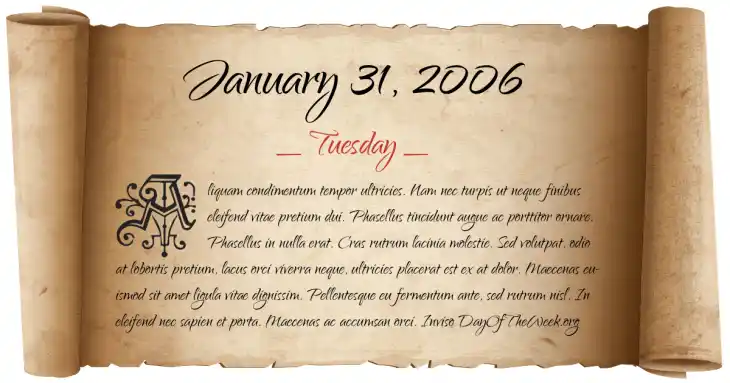 January 31, 2006
_ Tuesday _
Aliquam condimentum tempor ultricies. Nam nec turpis ut neque finibus
eleifend vitae pretium dui. Phasellus tincidunt augue ac porttitor ornare.
Phasellus in nulla erat. Cras rutrum lacinia molestie. Sed volutpat, odio
at lobortis pretium, lacus orci viverra neque, ultricies placerat est ex at dolor. Maecenas eu-
ismod sit amet ligula vitae dignissim. Pellentesque eu fermentum ante, sed rutrum nisl. In
eleifend nec sapien et porta. Maecenas ac accumsan orci. Inviso DayOfTheWeek.org